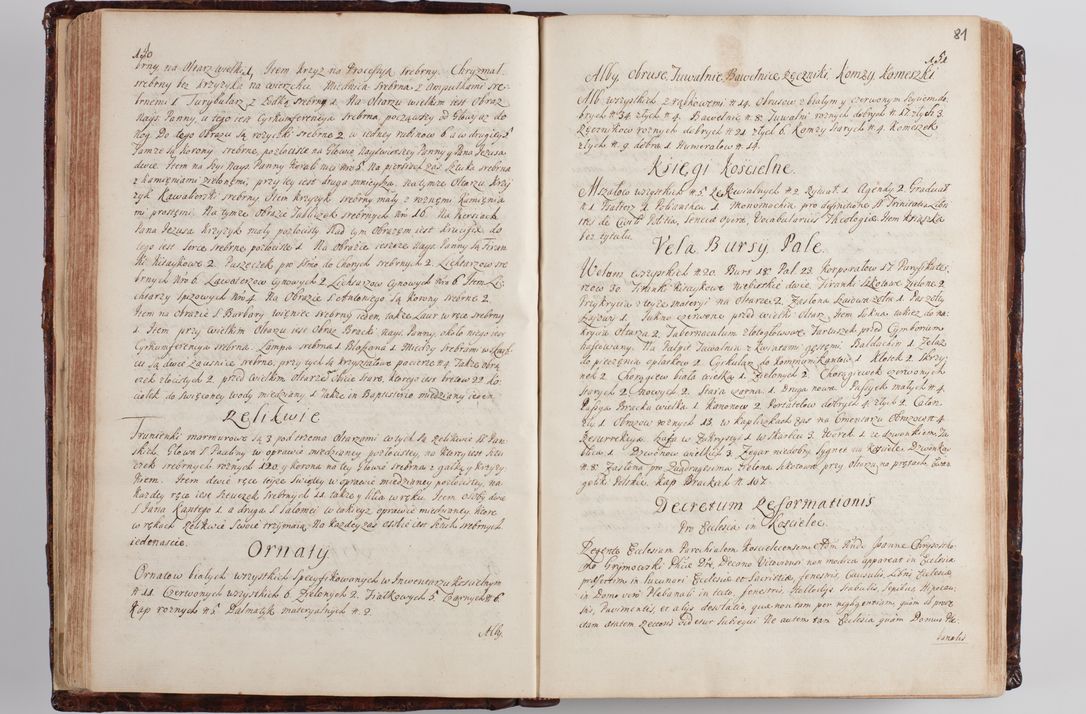 150
brny na Ołtarz wielki 1, Item Krzyż na Processyą srebrny. Chryzmal
srebrny bez krzyżyka na wierzchu. Miednica srebrna z ampułkami sre-
brnemi 1 Turybularz z Łódką srebrny 1. Na Ołtarzu wielkim iest Obraz
Nays. Panny, u tego iest Cyrkumferencya srebrna, począwszy od Głowy aż do
nóg. Do tego Obrazu są rożyczki srebrne 2 w iedney rubinow 6 a w drugiey
Tamże są korony srebrne pozłociste na Głowie Nayświętszey Panny y Pana Jezusa
dwie. Item na szyi Nays. Panny Korali nici Nro 5. Na piersiach zaś sztuka srebrna
z kamieniami zielonemi, przy tey iest druga mnieysza. Na tymże Ołtarzu krzy
żyk Kawalerski srebrny Item krzyżyk srebrny mały z rożnemi kamienia
mi prostemi. Na tymże Obrazie Tabliczek srebrnych Nro 16. Na Piersiach
Pana Jezusa Krzyżyk mały pozłocisty Nad tym Obrazem iest krucyfix do
tego iest Serce srebrne pozłociste 1. Na Obrazie ieszcze Nays. Panny są Firan
ki Kitaykowe 2. Puszeczek pro Sstmo do Chorych srebrnych 2. Lichtarzow sre
brnych Nro 6. Lawaterzow Cynowych 2 Lichtarzow Cynowych Nro 6. Item Li-
chtarzy spiżowych Nro 4. Na Obrazie S. Antoniego są korony srebrne 2.
Item na Obrazie S. Barbary wieniec srebrny ieden, także Laur w ręce srebrny
1. Item przy wielkim Ołtarzu iest Obraz Bracki Nays. Panny, około niego iest
Cyrkumferencya srebrna. Lampa srebrna 1
cu są dwie zausnice srebrne, przytych są kryształowe pacierze # 4. Także obra
czek złocistych 2. przed wielkim Ołtarzem
ciołek do święconey wody miedziany 1 także in Baptisterio miedziany ieden
Relikwie
Trunienki marmurowe są 3 pod trzema Ołtarzami w tych są Relikwie SS. Pań-
skich, Głowa S. Pauliny w oprawie miedzianey pozłocistey, na ktorey iest sztu
czek srebrnych rożnych 120. y korona na tey Głowie srebrna z gałką y krzyży
kiem. Item dwie ręce teyże Świętey w oprawie miedzianey pozłocistey, na
każdey ręce iest sztuczek srebrnych 11 także y lilia w ręku. Item osoby dwie
S. Jana Kantego 1. a druga S. Salomei w takieyż oprawie miedzianey, które
w rękach Relikwie Swoie trzymaią. Na każdey zaś osobie iest sztuk srebrnych
iedenascie.
Ornaty
Ornatow białych wszystkich Specyfikowanych w Inwentarzu Kościelnym
# 11. Czerwonych wszystkich 6. Zielonych 2. Fiałkowych 5. Czarnych # 6.
Kap rożnych # 5. Dalmatyk materyalnych # 2.
Alby
81
151
Alby, Obrusy, Tuwalnie, Bawełnice, Ręczniki, Komży, Komeszki
Alb wszystkich z rąbkowemi # 14. Obrusow z białym y czerwonym szyciem do-
brych # 34. złych # 4. Bawełnic # 8. Tuwalni rożnych dobrych # 17. złych 3.
Ręcznikow rożnych dobrych # 21 złych 6. Komży starych # 4. Komeżek
złych # 9. dobra 1. Humerałow # 14.
Księgi Kościelne.
Mszałow wszystkich # 5 Rekwialnych # 2. Rytuał 1. Agendy 2. Graduał
# 1. Psałterz 1. Poliantea 1.
tris de Civit Patria, Seneca opera, Vocabularius Theologiæ Item książka
bez tytułu.
Vela Bursy Pale.
Welow wszystkich # 20. Burs 18. Pal. 23. Korporałow 17. Puryfikate-
rzow 30. Firanki Kitaykowe niebieskie dwie. Firanki szkotowe zielone 2.
Przykrycia z teyże materyi na Ołtarze 2. Zasłona 1.
Łazowy 1. Sukno czerwone przed wielki Ołtarz Item Sukna także do na-
krycia Ołtarza 2. Tabernaculum złotogłowowe Fartuszek przed Cymborium
haftowany. Na Pulpit Tuwalnia z kwiatami gęstemi. Baldachin 1. Żelaz
do pieczenia opłatkow 2. Cyrkularz do kommunikantow 1. Klosek 2. Skrzy-
nek 2. Chorągiew biała wielka 1. zielonych 2. Chorągiewek czerwonych
starych 2. nowych 2. stara czarna 1. druga nowa. Passyek małych # 4.
Passya Bracka wielka 1. Kanonow 2. Portatelow dobrych 4. złych 2. Całun
zły 1. Obrazow rożnych 13. w kapliczkach zaś na Cmentarzu Obrazow # 4.
Rezurrekcya Szafa w Zakrystyi 1. w Skarbcu 3. Worek 1. ze dzwonkiem. Ta-
blica 1. Dzwonow wielkich 3. Zegar niedobry, Sygnet na Kościele. Dzwonkow
# 8. Zasłona pro Quadragesima zielona szkotowa przy Ołtarzu na prętach, Ewan
gelik Polskie. Kap Brackich # 107.
Decretum Reformationis
Pro Ecclesia in Kościelec.
Regens Ecclesiam Parochialem Koscielecensem Adm Rndo Joanne Chrysosto-
mo Grymowski Phiæ Dre, Decano Vitoviensi non modica appareat in Ecclesia
præsertim in lucunari Ecclesiæ et Sacristia, fenestris, Casulis, Libris Ecclesiæ
in Domo vero Plebanali in tecto, fenestris, Stallodiis Stabulis, Sepibus, Hypocau-
stis, Pavimentis, et aliis desolatio, quæ non tam per negligentiam, quam ob provec
tam ætatem Rectoris videtur subsequi. Ne autem tam Ecclesia quàm Domus Ple-
banalis